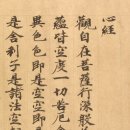 心經
觀自在菩薩行深般
蘊皆空度一切苦厄
異色色即是空空
是舍利子是諸法空